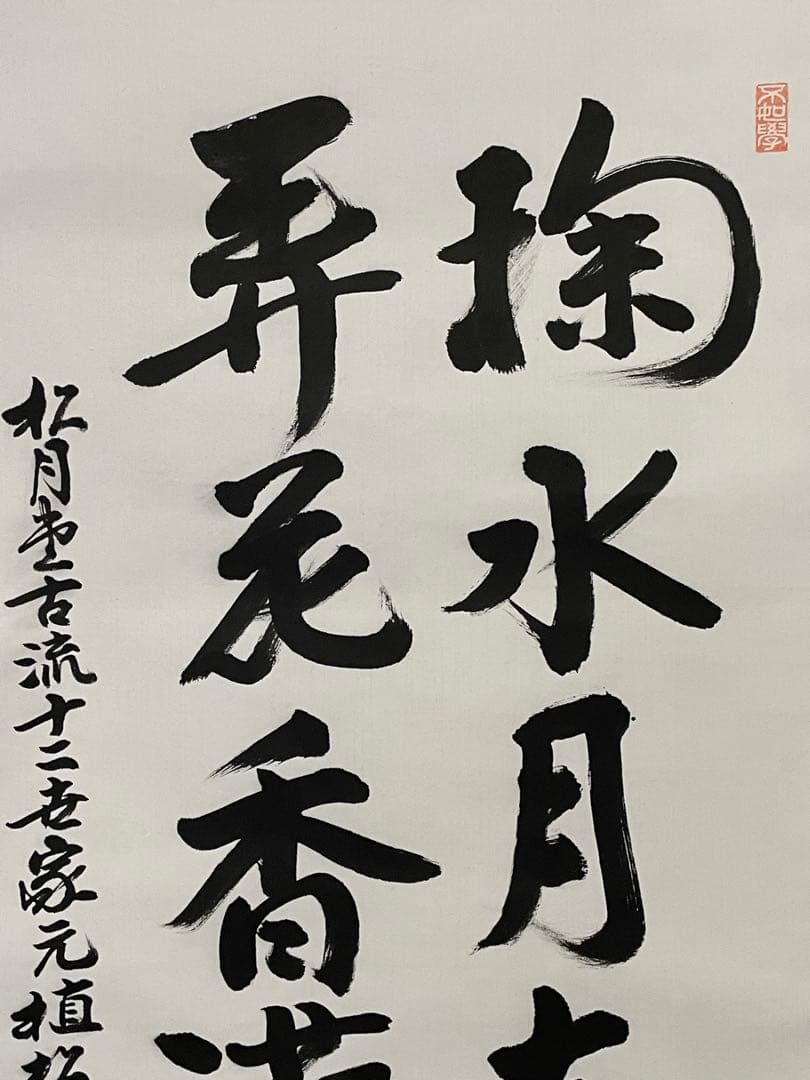 不如學
掬水月在
弄花香滿
松月堂古流十二世家元植松